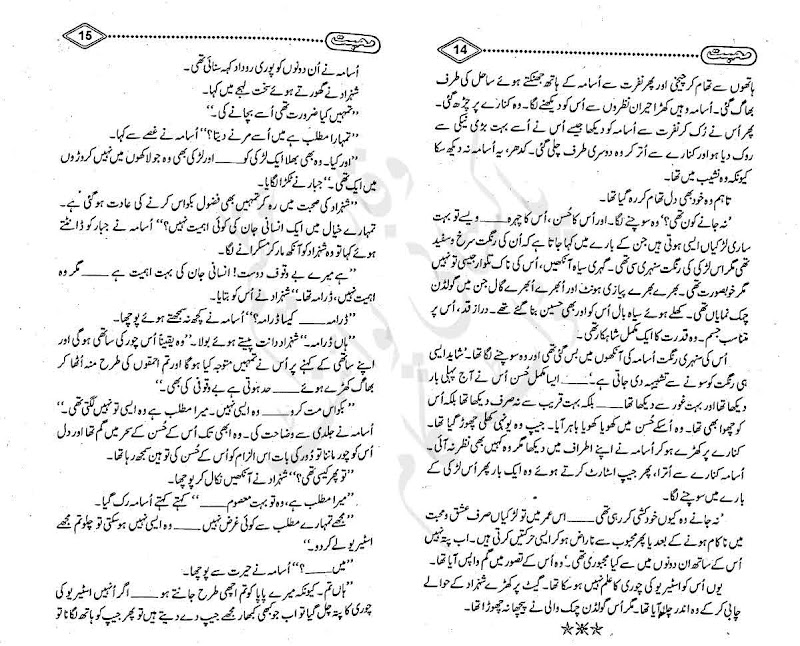 14
محبت
ہاتھوں سے تھام کر چیخی اور پھر نفرت سے اُسامہ کے ہاتھ جھٹکتے ہوئے ساحل کی طرف
بھاگ گئی۔ اُسامہ وہیں کھڑا حیران نظروں سے اُس کو دیکھنے لگا۔ وہ کنارے پر چڑھ گئی
پھر اُس نے رُک کر نفرت سے اُسامہ کو دیکھا جیسے اُس نے اُسے بہت بڑی نیکی سے
روک دیا ہو اور کنارے سے اُتر کر وہ دوسری طرف چلی گئی۔ کدھر، یہ اُسامہ نہ دیکھ سکا
کیونکہ وہ نشیب میں تھا۔
تاہم وہ خود بھی دل تھام کر رہ گیا تھا۔
’نہ جانے کون تھی؟‘ وہ سوچنے لگا۔ اور اُس کا حُسن، اُس کا چہرہ ____ ویسے تو بہت
ساری لڑکیاں ایسی ہوتی ہیں جن کے بارے میں کہا جاتا ہے کہ اُن کی رنگت سرخ و سفید
تھی مگر اس لڑکی کی رنگت سنہری سی تھی۔ گہری سیاہ آنکھیں، اُس کی ناک تلوار جیسی تو نہیں
مگر خوبصورت تھی۔ بھرے بھرے پیازی ہونٹ اور اُبھرے اُبھرے گال جن میں گولڈن
چمک نمایاں تھی۔ کھلے ہوئے سیاہ بال اُس کو اور بھی حسین بنا گئے تھے۔ دراز قد، اُس پر
متناسب جسم۔ وہ قدرت کا ایک مکمل شاہکار تھی۔
اُس کی سنہری رنگت اُسامہ کی آنکھوں میں بس گئی تھی اور وہ سوچنے لگا تھا۔ ’شاید ایسی
ہی رنگت کو سونے سے تشبیہہ دی جاتی ہے۔‘ ____ ایسا مکمل حُسن اُس نے آج پہلی بار
دیکھا تھا اور بہت غور سے دیکھا تھا ____ بلکہ بہت قریب سے نہ صرف دیکھا تھا بلکہ اُس
کو چھوا بھی تھا۔ وہ اُسکے حُسن میں کھویا کھویا باہر آیا۔ جیپ وہ یونہی کھلی چھوڑ گیا تھا۔
کنارے پر کھڑے ہو کر اُسامہ نے اپنے اطراف میں دیکھا مگر وہ کہیں بھی نظر نہ آئی۔
اُسامہ کنارے سے اُترا، پھر جیپ اسٹارٹ کرتے ہوئے وہ ایک بار پھر اُس لڑکی کے
بارے میں سوچنے لگا۔
’نہ جانے وہ کیوں خودکشی کر رہی تھی ____ اس عمر میں تو لڑکیاں صرف عشق و محبت
میں ناکام ہونے کے بعد یا پھر محبوب سے ناراض ہو کر ایسی حرکتیں کرتی ہیں۔ اب پتہ نہیں
اُس کے ساتھ ان دونوں میں سے کیا مجبوری تھی۔‘ وہ اُس کے تصور میں گم واپس آیا تھا۔
یوں اُس کو اسٹیریو کی چوری کا علم نہیں ہو سکا تھا۔ گیٹ پر کھڑے شہزاد کے حوالے
چابی کر کے وہ اندر چلا آیا تھا۔ مگر اُس گولڈن چمک والی نے پیچھا نہ چھوڑا تھا۔
✳✳✳
15
محبت
اُسامہ نے اُن دونوں کو پوری روداد کہہ سنائی تھی۔
شہزاد نے گھورتے ہوئے سخت لہجے میں کہا۔
’’تمہیں کیا ضرورت تھی اُسے بچانے کی۔‘‘
’’تمہارا مطلب ہے میں اُسے مرنے دیتا؟‘‘ اُسامہ نے غصے سے کہا۔
’’اور کیا۔ وہ بھی بھلا ایک لڑکی کو ____ اور لڑکی بھی وہ جو لاکھوں میں نہیں کروڑوں
میں ایک تھی۔‘‘ جبار نے ٹکڑا لگایا۔
’’شہزاد کی صحبت میں رہ کر تمہیں بھی فضول بکواس کرنے کی عادت ہو گئی ہے۔
تمہارے خیال میں ایک انسانی جان کی کوئی اہمیت نہیں؟‘‘ اُسامہ نے جبار کو ڈانٹتے
ہوئے کہا تو وہ شہزاد کو آنکھ مار کر مسکرانے لگا۔
’’ہے میرے بے وقوف دوست! انسانی جان کی بہت اہمیت ہے ____ مگر وہ
اہمیت نہیں، ڈرامہ تھا۔‘‘ شہزاد نے اُس کو بتایا۔
’’ڈرامہ ____ کیسا ڈرامہ؟‘‘ اُسامہ نے کچھ نہ سمجھتے ہوئے پوچھا۔
’’ہاں ڈرامہ۔‘‘ شہزاد دانت پیستے ہوئے بولا۔ ’’وہ یقیناً اُس چور کی ساتھی ہو گی اور
اپنے ساتھی کے کہنے پر اُس نے تمہیں متوجہ کیا ہو گا اور تم احمقوں کی طرح منہ اٹھا کر
بھاگ کھڑے ہوئے ____ حد ہوتی ہے بے وقوفی کی بھی۔‘‘
’’بکواس مت کرو ____ وہ ایسی نہیں۔ میرا مطلب ہے وہ ایسی تو نہیں لگتی تھی۔‘‘
اُسامہ نے جلدی سے وضاحت کی۔ وہ ابھی تک اُس کے حُسن کے سحر میں گم تھا اور دل
اُس کو چور ماننا تو دُور کی بات اس الزام کو اُس کے حُسن کی توہین سمجھ رہا تھا۔
’’تو پھر کیسی تھی؟‘‘ شہزاد نے آنکھیں نکال کر پوچھا۔
’’میرا مطلب ہے، وہ تو بہت معصوم ____‘‘ کہتے کہتے اُسامہ رک گیا۔
’’مجھے تمہارے مطلب سے کوئی غرض نہیں ____ وہ ایسی نہیں ہو سکتی تو چلو تم مجھے
اسٹیریو لے کر دو۔‘‘
’’میں ____؟‘‘ اُسامہ نے حیرت سے پوچھا۔
’’ہاں تم۔ کیونکہ میرے پاپا کو تم اچھی طرح جانتے ہو ____ اگر اُنہیں اسٹیریو کی
چوری کا پتہ چل گیا تو اب جو کبھی کبھار مجھے جیپ دے دیتے ہیں تو پھر جیپ کو ہاتھ لگانا تو